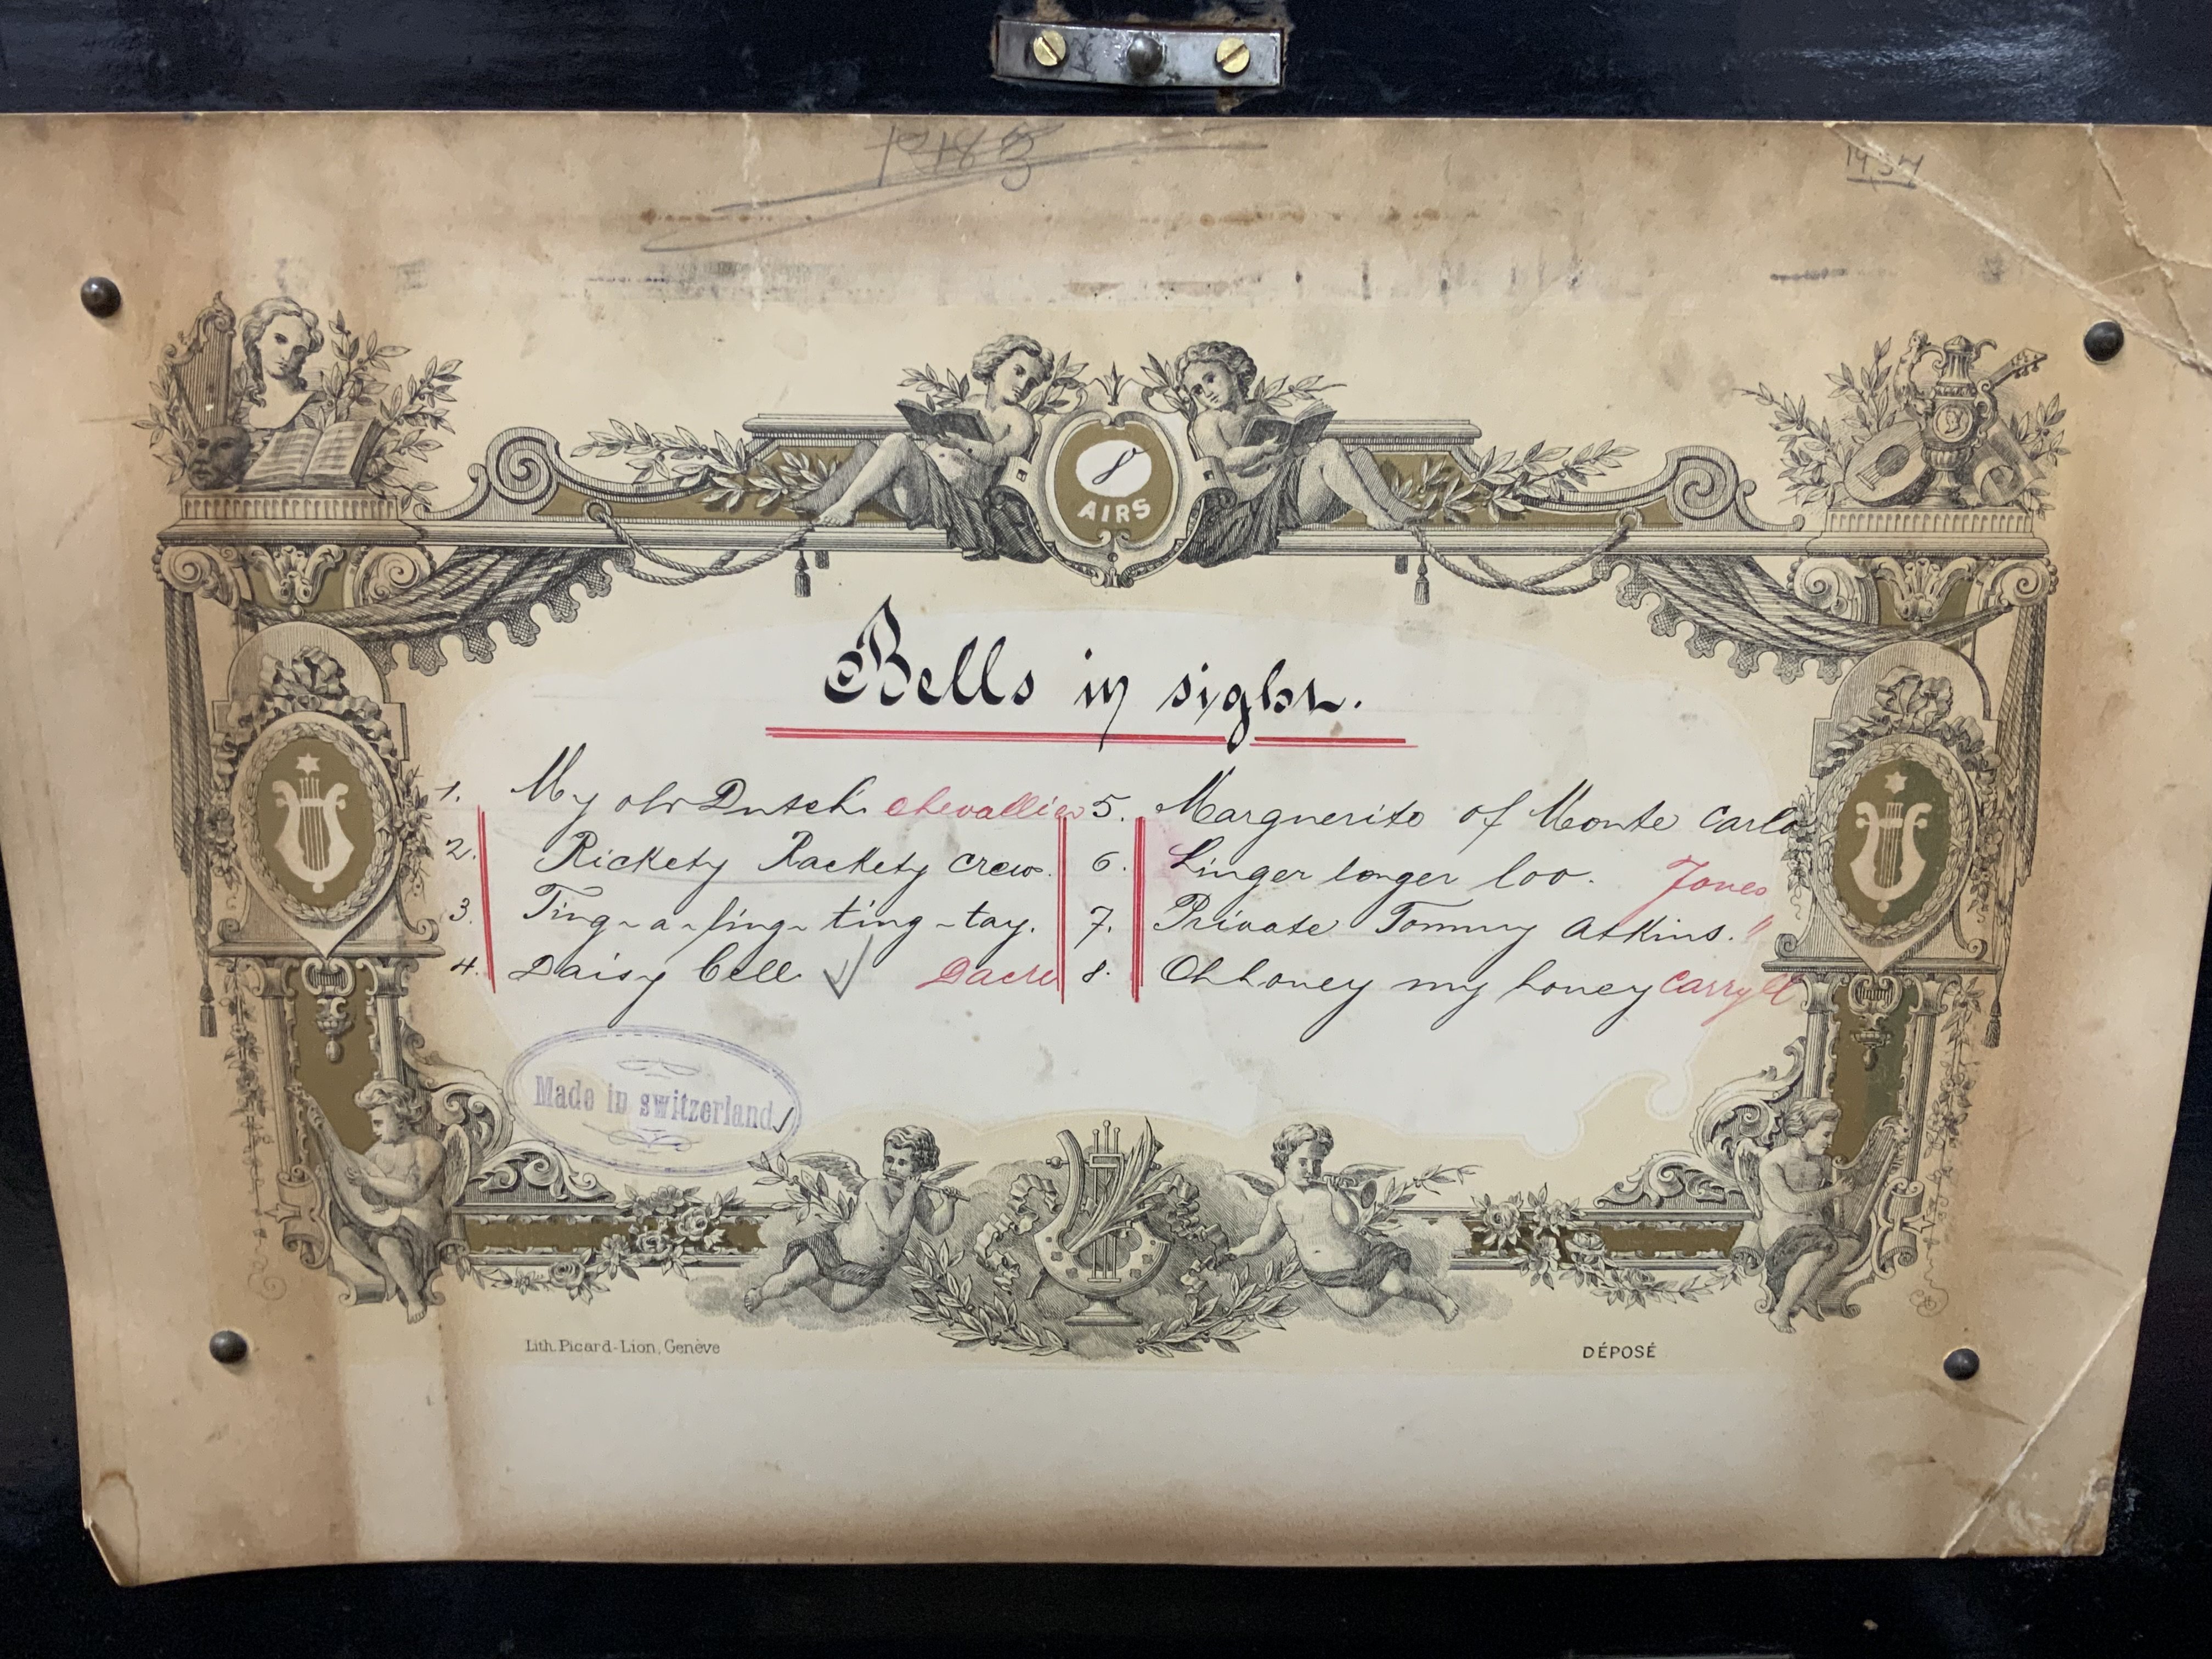 1937
8
AIRS
Bells in sight.
1. My old Dutch. Chevallier
2. Rickety Rackety crew.
3. Ting-a-ling-ting-tay.
4. Daisy bell Dacre
5. Marguerite of Monte Carlo
6. Linger longer loo. Jones
7. Private Tommy Atkins. "
8. Oh honey my honey Carryll
Made in switzerland
Lith. Picard-Lion, Genève
DÉPOSÉ